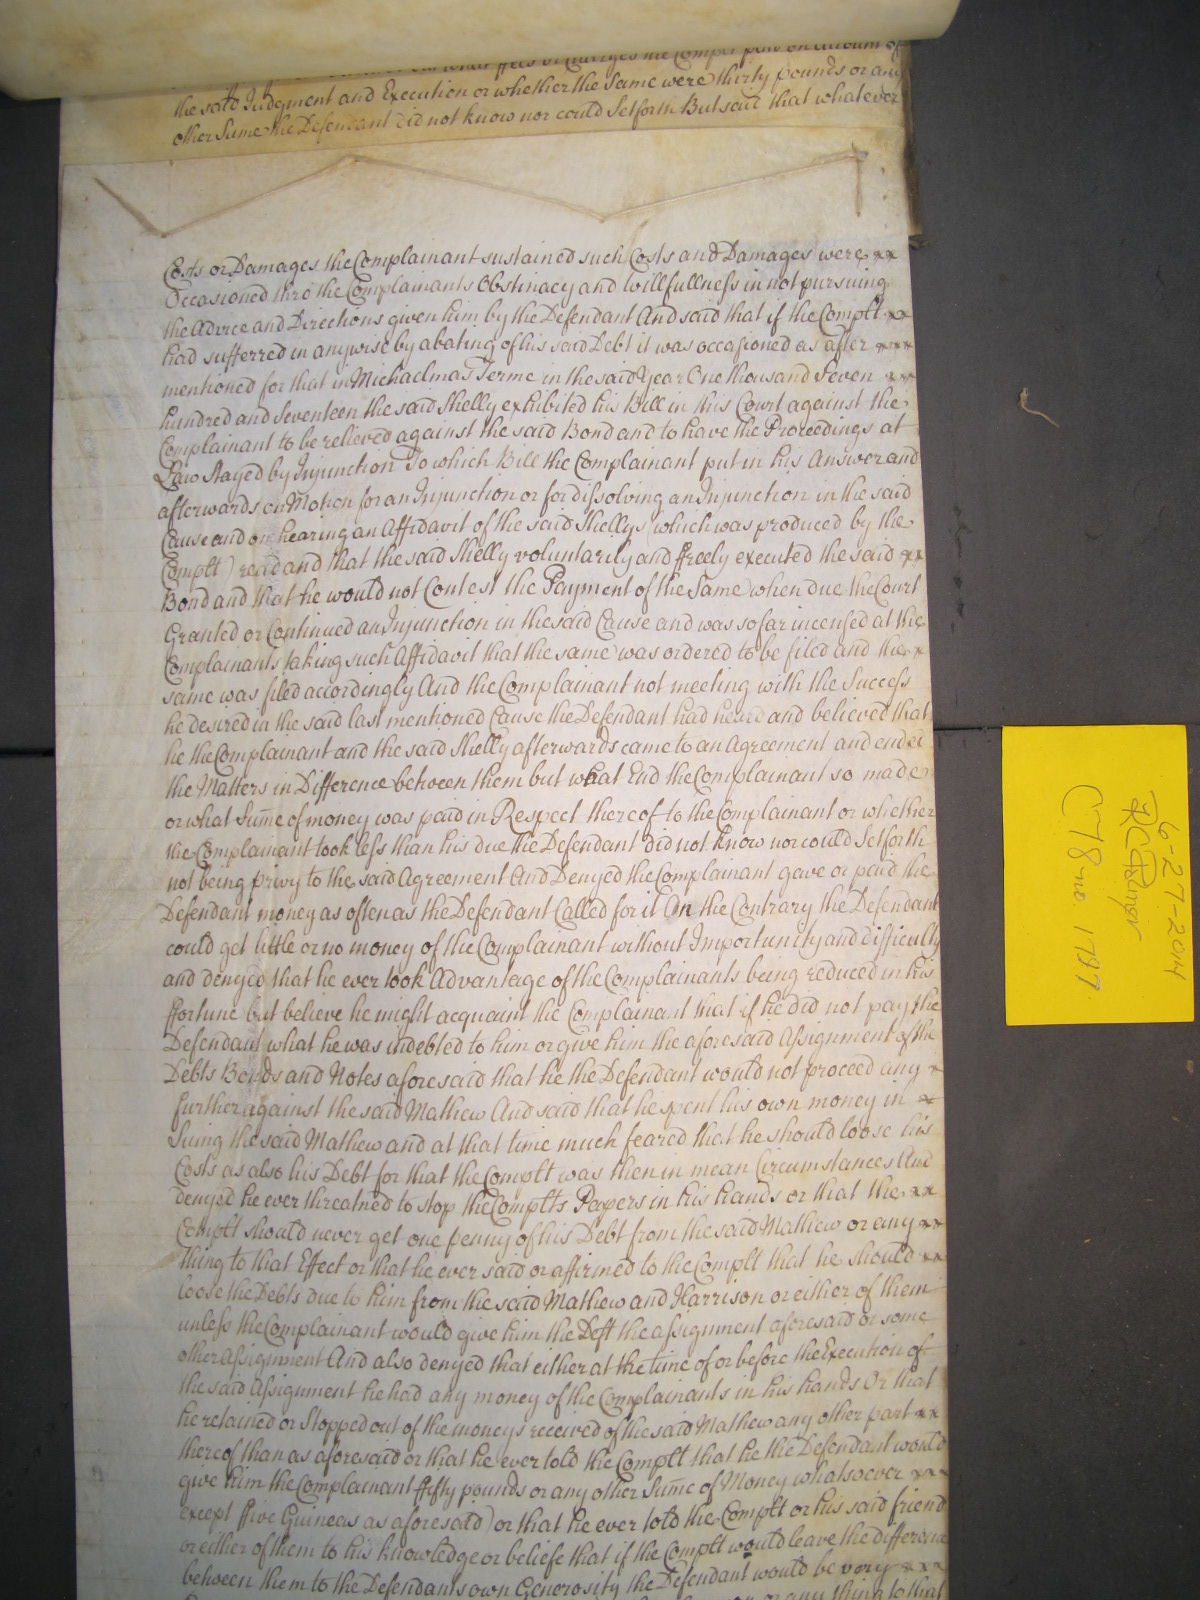 what ffees or Charges the Complt paid on Account of
the said Judgment and Execution or whether the same were thirty pounds or any
other Sume the Defendant did not know nor could Setforth But said that whatever
Costs or Damages the Complainant sustained such Costs and Damages were xx
Occasioned thro the Complainants Obstinacy and willfullness in not pursuing
the Advice and Directions given him by the Defendant And said that if the Complt xx
had sufferred in anywise by abating of his said Debt it was occasioned as after xxx
mentioned for that in Michaelmas Terme in the said Year One thousand Seven xx
hundred and Seventeen the said Shelly exhibited his Bill in this Court against the
Complainant to be relieved against the said Bond and to have the Proceedings at
Law stayed by Injunction To which Bill the Complainant put in his Answer and
afterwards on Motion for an Injunction or for dissolving an Injunction in the said
Cause and on hearing an Affidavit of the said Shellys (which was produced by the
Complt) read and that the said Shelly voluntarily and ffreely executed the said xx
Bond and that he would not Contest the Payment of the Same when due the Court
Granted or Continued an Injunction in the said Cause and was so far incensed at the
Complainants taking such Affidavit that the same was ordered to be filed and the x
same was filed accordingly And the Complainant not meeting with the Success
he desired in the said last mentioned Cause the Defendant had heard and believed that
he the Complainant and the said Shelly afterwards came to an Agreement and ended
the Matters in Difference between them but what End the Complainant so made
or what Sume of money was paid in Respect thereof to the Complainant or whether
the Complainant took less than his due the Defendant did not know nor could Setforth
not being privy to the said Agreement And Denyed the Complainant gave or paid the
Defendant money as often as the Defendant Called for it On the Contrary the Defendant
could get little or no money of the Complainant without Importunity and difficulty
and denyed that he ever took Advantage of the Complainants being reduced in his
ffortune but believe he might acquaint the Complainant that if he did not pay the
Defendant what he was indebted to him or give him the aforesaid Assignment of the
Debts Bonds and Notes aforesaid that he the Defendant would not proceed any x
further against the said Mathew And said that he spent his own money in x
Suing the said Mathew and at that time much feared that he should loose his
Costs as also his Debt for that the Complt was then in mean Circumstances And
denyed he ever threatned to stop the Complts Papers in his hands or that the xx
Complt should never get one penny of his Debt from the said Mathew or any xx
thing to that Effect or that he ever said or affirmed to the Complt that he should xx
loose the Debts due to him from the said Mathew and Harrison or either of them
unless the Complainant would give him the Deft the assignment aforesaid or some
other Assignment And also denyed that either at the time of or before the Execution of
the said Assignment he had any money of the Complainants in his hands Or that
he retained or Stopped out of the moneys received of the said Mathew any other part xx
thereof than as aforesaid or that he ever told the Complt that he the Defendant would
give him the Complainant ffifty pounds or any other Sume of Money whatsoever xxx
except ffive Guineas as aforesaid) or that he ever told the Complt or his said friend
or either of them to his knowledge or beliefe that if the Complt would leave the difference
between them to the Defendants own Generosity the Defendant would be very xxx
or any thing to that
6-27-2014
C78 no. 1797